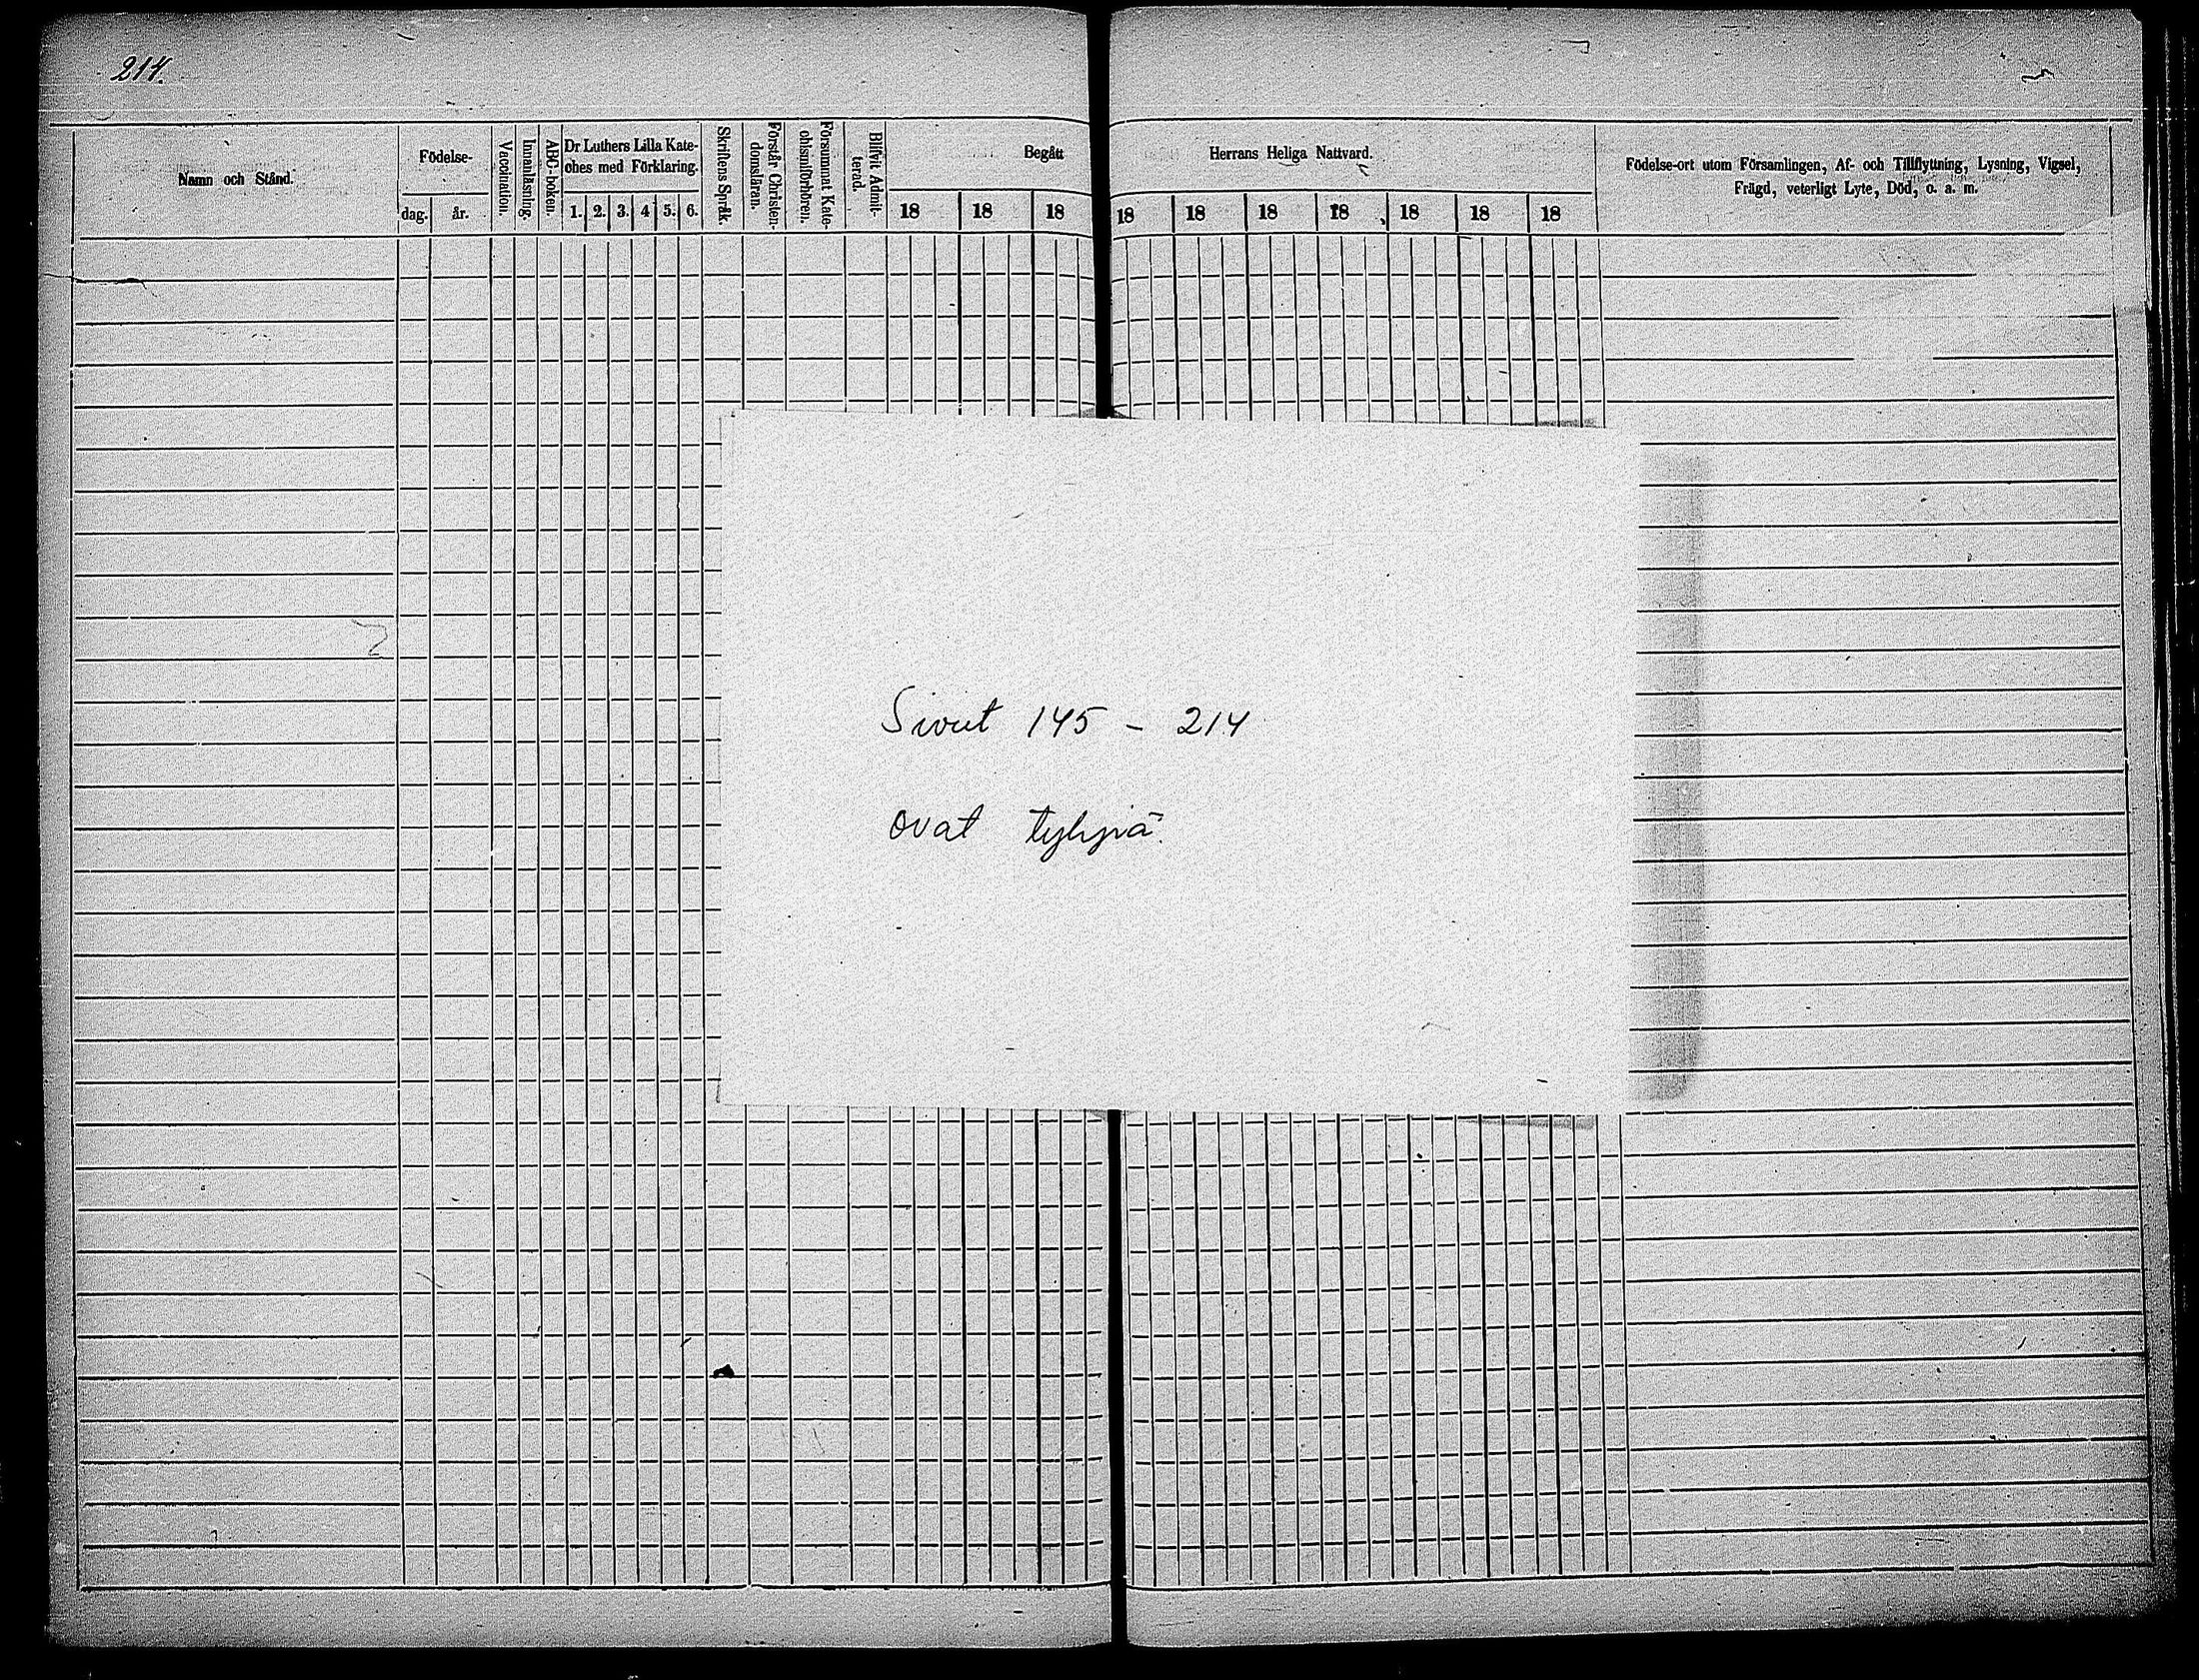 214.
Namn och Stånd.
Födelse-
dag. år.
Vaccination.
Innanläsning.
ABC-boken.
Dr Luthers Lilla Kate-
ches med Förklaring.
1. 2. 3. 4 5. 6.
Skriftens Språk.
Förstår Christen-
domsläran.
Försummat Kate-
chismiförhören.
Blifvit Admit-
terad.
Begått
18 18 18
Herrans Heliga Nattvard.
18 18 18 18 18 18 18
Födelse-ort utom Församlingen, Af- och Tillflyttning, Lysning, Vigsel,
Frägd, veterligt Lyte, Död, o. a. m.
Sivut 145 - 214
ovat tyhjiä.